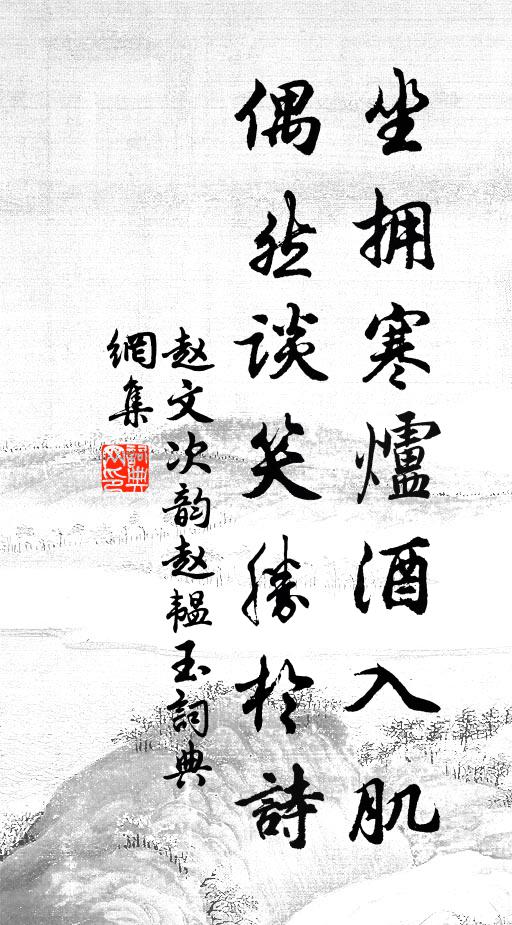 坐拥寒爐酒入肌
偶然谈笑勝於詩
赵文次韵赵韫玉詞典
網集
詞典网印